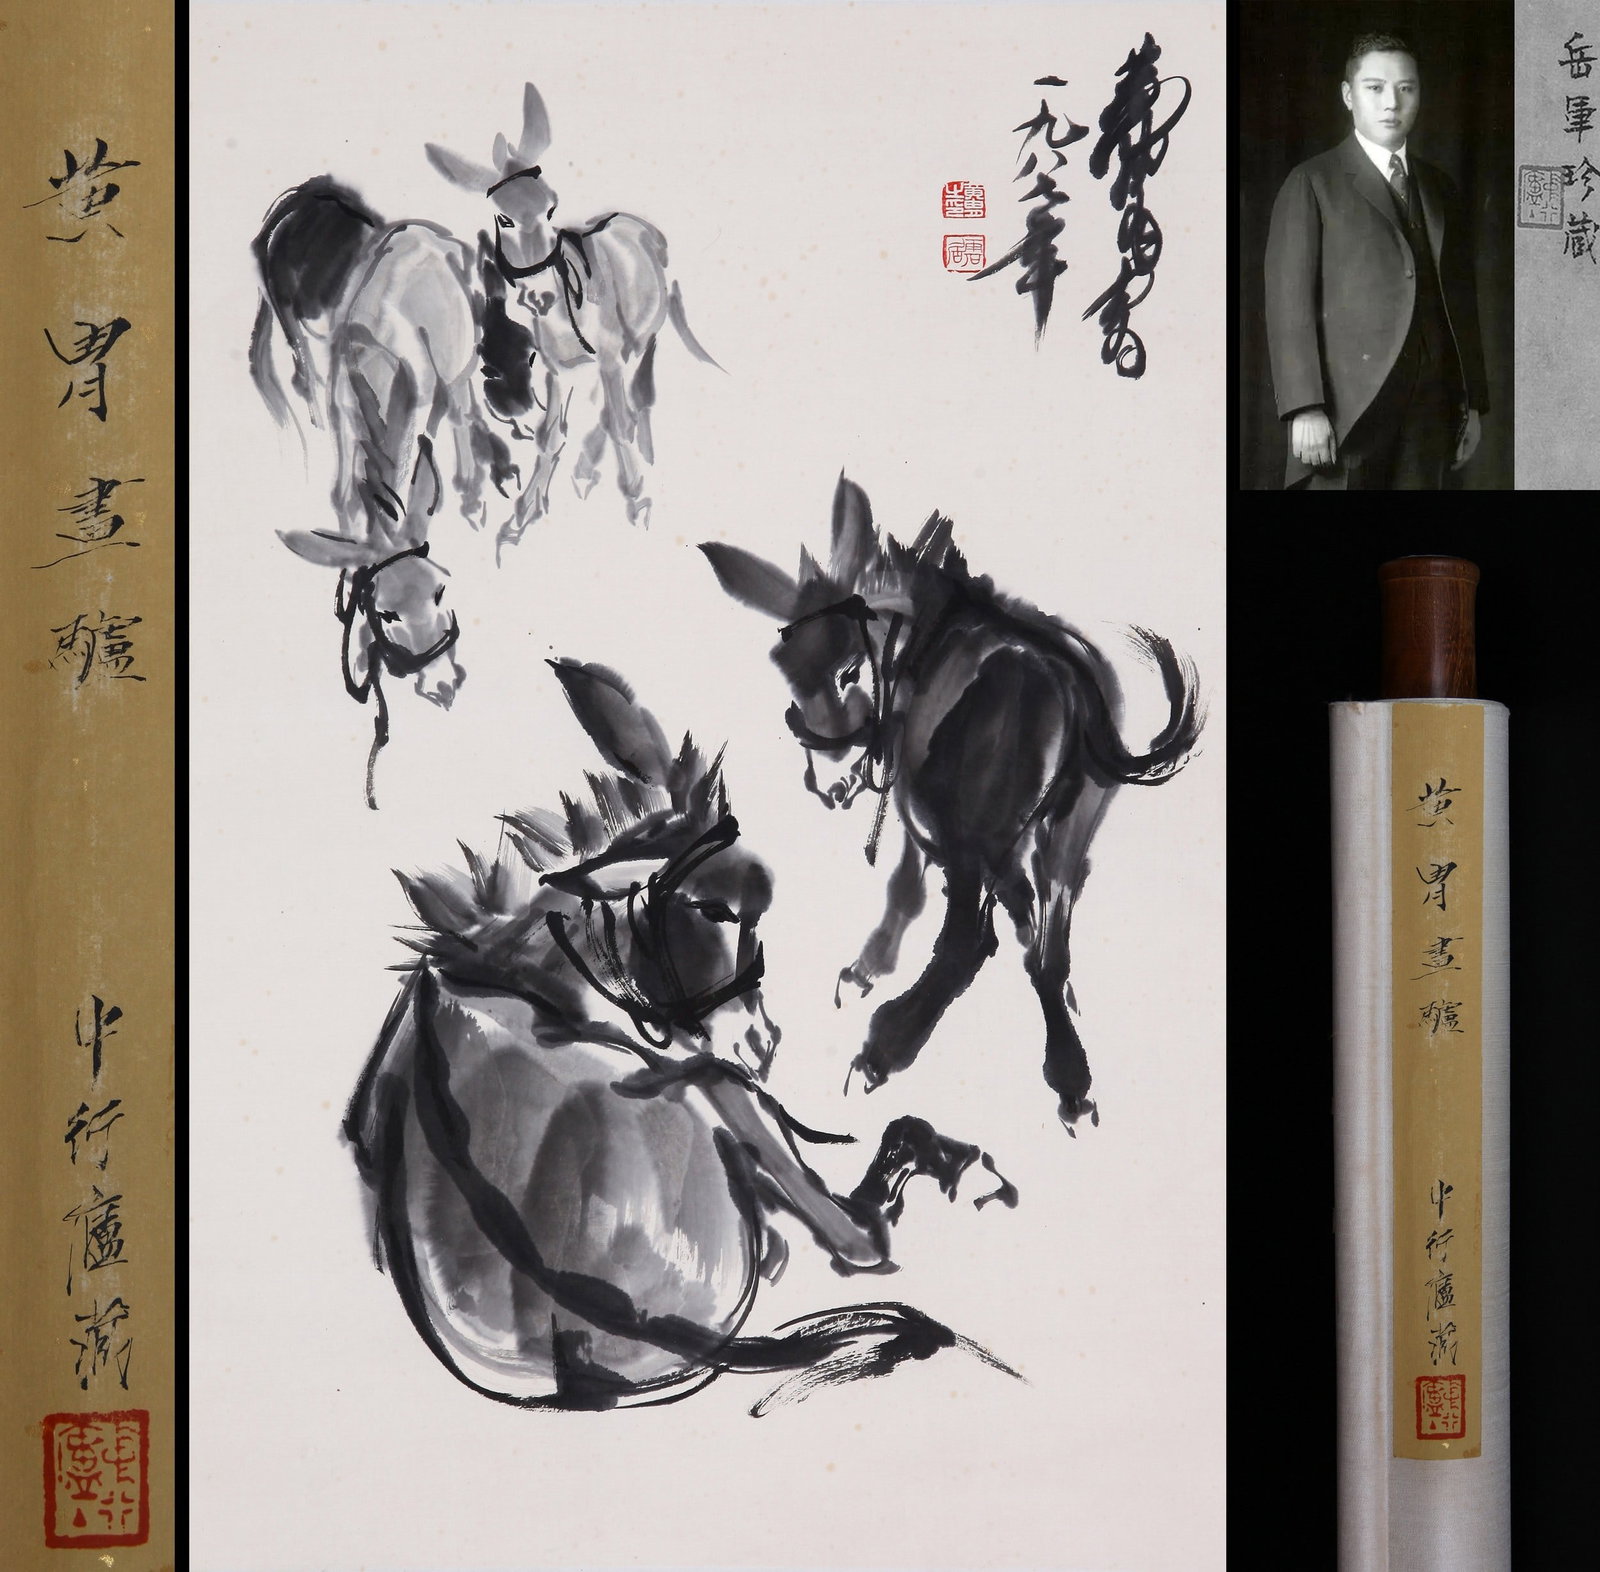 黄胄畫驢
中行廬藏
黄胄畫
一九八七年
黄胄之印
岳軍珍藏
黄胄畫驢
中行廬藏